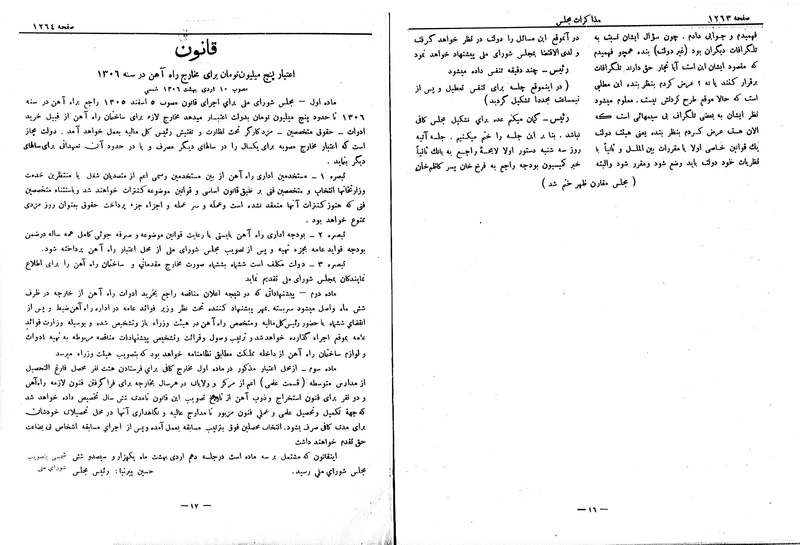 صفحه ۱۲۶۳
مذاکرات مجلس
فهمیدم و جوابی دادم . چون سؤال ایشان نسبت به
تلگرافات دیگران بود (غیر دولت) بنده همچو فهمیدم
که مقصود ایشان این است آیا تجار حق دارند تلگرافات
برقرار کنند یا نه ؟ عرض کردم بنظر بنده این مطلبی
است که حالا موقع طرح کردنش نیست . معلوم میشود
نظر ایشان به بعضی تلگراف بی سیمهائی است که
الان هست عرض کردم بنظر بنده یعنی هیئت دولت
یک قوانین خاصی اولا با مقررات بین الملل و ثانیاً با
نظریات خود دولت باید وضع شود ومقرر شود والبته
در آنموقع این مسائل را دولت در نظر خواهد گرفت
و لدی الاقتضا بمجلس شورای ملی پیشنهاد خواهد نمود
رئیس ــ چند دقیقه تنفس داده میشود
( در اینموقع جلسه برای تنفس تعطیل و پس از
نیمساعت مجدداً تشکیل گردید )
رئیس ــ گمان میکنم عده برای تشکیل مجلس کافی
نباشد . بنا بر این جلسه را ختم میکنیم . جلسه آتیه
روز سه شنبه دستور اولا لایحهٔ راجع به بانک ثانیاً
خبر کمیسیون بودجه راجع به فرخ خان پسر کاظم خان
( مجلس مقارن ظهر ختم شد )
ــ ۱۶ ــ
صفحه ۱۲۶۴
قانون
اعتبار پنج میلیون تومان برای مخارج راه آهن در سنه ۱۳۰۶
مصوب ۱۰ اردی بهشت ۱۳۰۶ شمسی
ماده اول ــ مجلس شورای ملی برای اجرای قانون مصوب ۵ اسفند ۱۳۰۵ راجع براه آهن در سنه
۱۳۰۶ تا حدود پنج میلیون تومان بدولت اعتبار میدهد مخارج لازم برای ساختمان راه آهن از قبیل خرید
ادوات ــ حقوق متخصصین ــ مزد کارگر تحت نظارت و تفتیش رئیس کل مالیه بعمل خواهد آمد . دولت مجاز
است که اعتبار مخارج مصوبه برای یکسال را در سالهای دیگر مصرف و یا در حدود آن تعهداتی برای سالهای
دیگر بنماید .
تبصره ۱ ــ مستخدمین اداری راه آهن از بین مستخدمین رسمی اعم از متصدیان شغل یا منتظرین خدمت
وزارتخانها انتخاب و متخصصین فنی بر طبق قانون اساسی و قوانین موضوعه کنترات خواهند شد وباستثناء متخصصین
فنی که هنوز کنترات آنها منعقد نشده است وعمله و سر عمله و اجزاء جزء پرداخت حقوق بعنوان روز مزدی
ممنوع خواهد بود .
تبصره ۲ ــ بودجه اداری راه آهن بایستی با رعایت قوانین موضوعه و صرفه جوئی کامل همه ساله در ضمن
بودجه فواید عامه بجزء تهیه و پس از تصویب مجلس شورای ملی از محل اعتبار راه آهن پرداخته شود.
تبصره ۳ ــ دولت مکلف است ششماه بششماه صورت مخارج مقدماتی و ساختمان راه آهن را برای اطلاع
نمایندگان بمجلس شورای ملی تقدیم نماید
ماده دوم ــ پیشنهاداتی که در نتیجه اعلان مناقصه راجع بخرید ادوات راه آهن از خارجه در ظرف
شش ماه واصل میشود سربسته بمهر پیشنهاد کننده تحت نظر وزیر فوائد عامه در اداره راه آهن ضبط و پس از
انقضای ششماه با حضور رئیس کل مالیه ومتخصص راه آهن در هیئت وزراء باز وتشخیص شده و بوسیله وزارت فوائد
عامه بموقع اجراء گذارده خواهد شد و ترتیب وصول وقرائت وتشخیص پیشنهادات مناقصه مربوطه به تهیه ادوات
و لوازم ساختمان راه آهن از داخله مملکت مطابق نظامنامه خواهد بود که بتصویب هیئت وزراء میرسد
ماده سوم ــ از محل اعتبار مذکور در ماده اول مخارج کافی برای فرستادن هشت نفر محصل فارغ التحصیل
از مدارس متوسطه (قسمت علمی) اعم از مرکز و ولایات در هر سال بخارجه برای فرا گرفتن فنون لازمه راه آهن
و دو نفر برای فنون استخراج و ذوب آهن از تاریخ تصویب این قانون تا مدت شش سال تخصیص داده خواهد شد
که جهة تکمیل وتحصیل علمی و عملی فنون مزبور تا مدارج عالیه و نگاهداری آنها در محل تحصیلات خودشان
برای مدت کافی صرف بشود. انتخاب محصلین فوق بترتیب مسابقه بعمل آمده و پس از اجرای مسابقه اشخاص بی بضاعت
حق تقدم خواهند داشت
اینقانون که مشتمل بر سه ماده است در جلسه دهم اردی بهشت ماه یکهزار و سیصد و شش شمسی بتصویب
مجلس شورای ملی رسید. رئیس مجلس حسین پیرنیا:
شورای ملی
ــ ۱۷ ــ